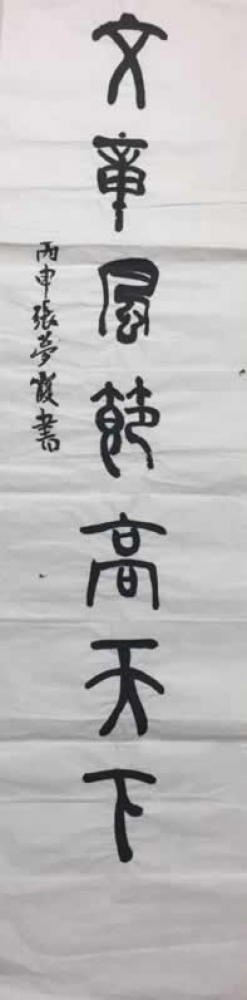 文章風節高天下
丙申張夢霞書